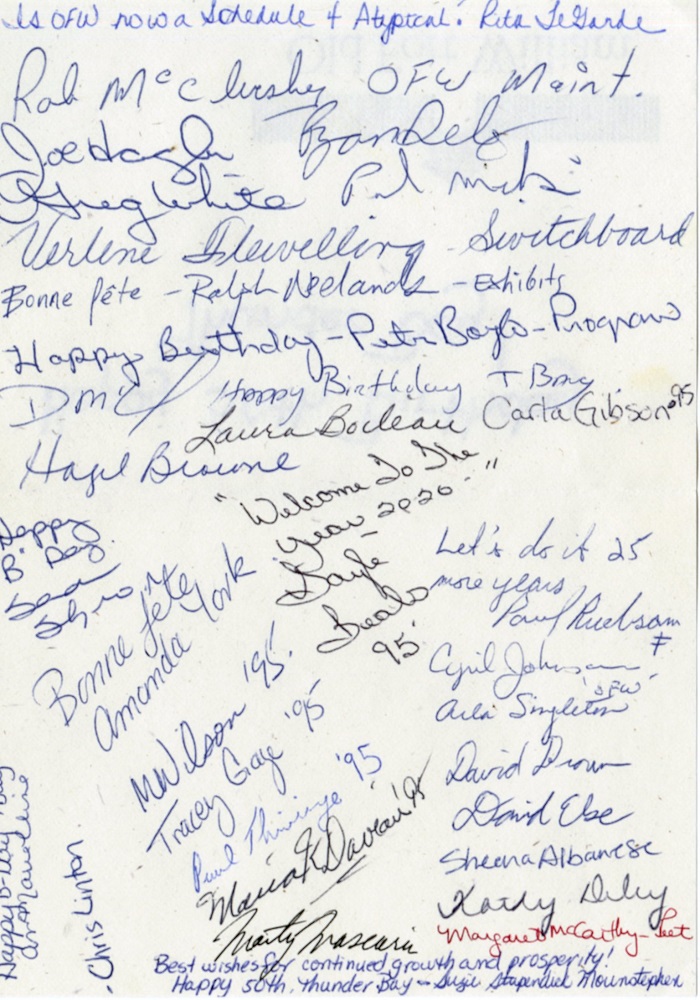 Is OFW now a Schedule 4 Atypical? Rita LeGarde
Rob McClusky OFW Maint.
Joe
Greg White Paul
Verlene Flewelling - Switchboard
Bonne fête - Ralph Neelands - Exhibits
Happy Birthday - Peter Boyle - Programs
Happy Birthday T Bay
Laura Bocleau Carla Gibson '95
Hazel Browne
"Welcome To The
year 2020."
Gayle
Beals
95'
Happy
B' Day
Sean
Bonne fête
Amanda York
Let's do it 25
more years
Paul Ruebsam
Cyril Johnson
'OFW'
Arla Singleton
M Wilson '95.
Tracey Graye '95
Paul '95
David Drown
David Else
Sheena Albanese
Kathy Daley
Margaret McCarthy-Peet
Marty Mascarin
Happy B-Day T'Bay
Chris Linton
Best wishes for continued growth and prosperity!
Happy 50th, Thunder Bay - Suzie Stapendiek Mounstephen